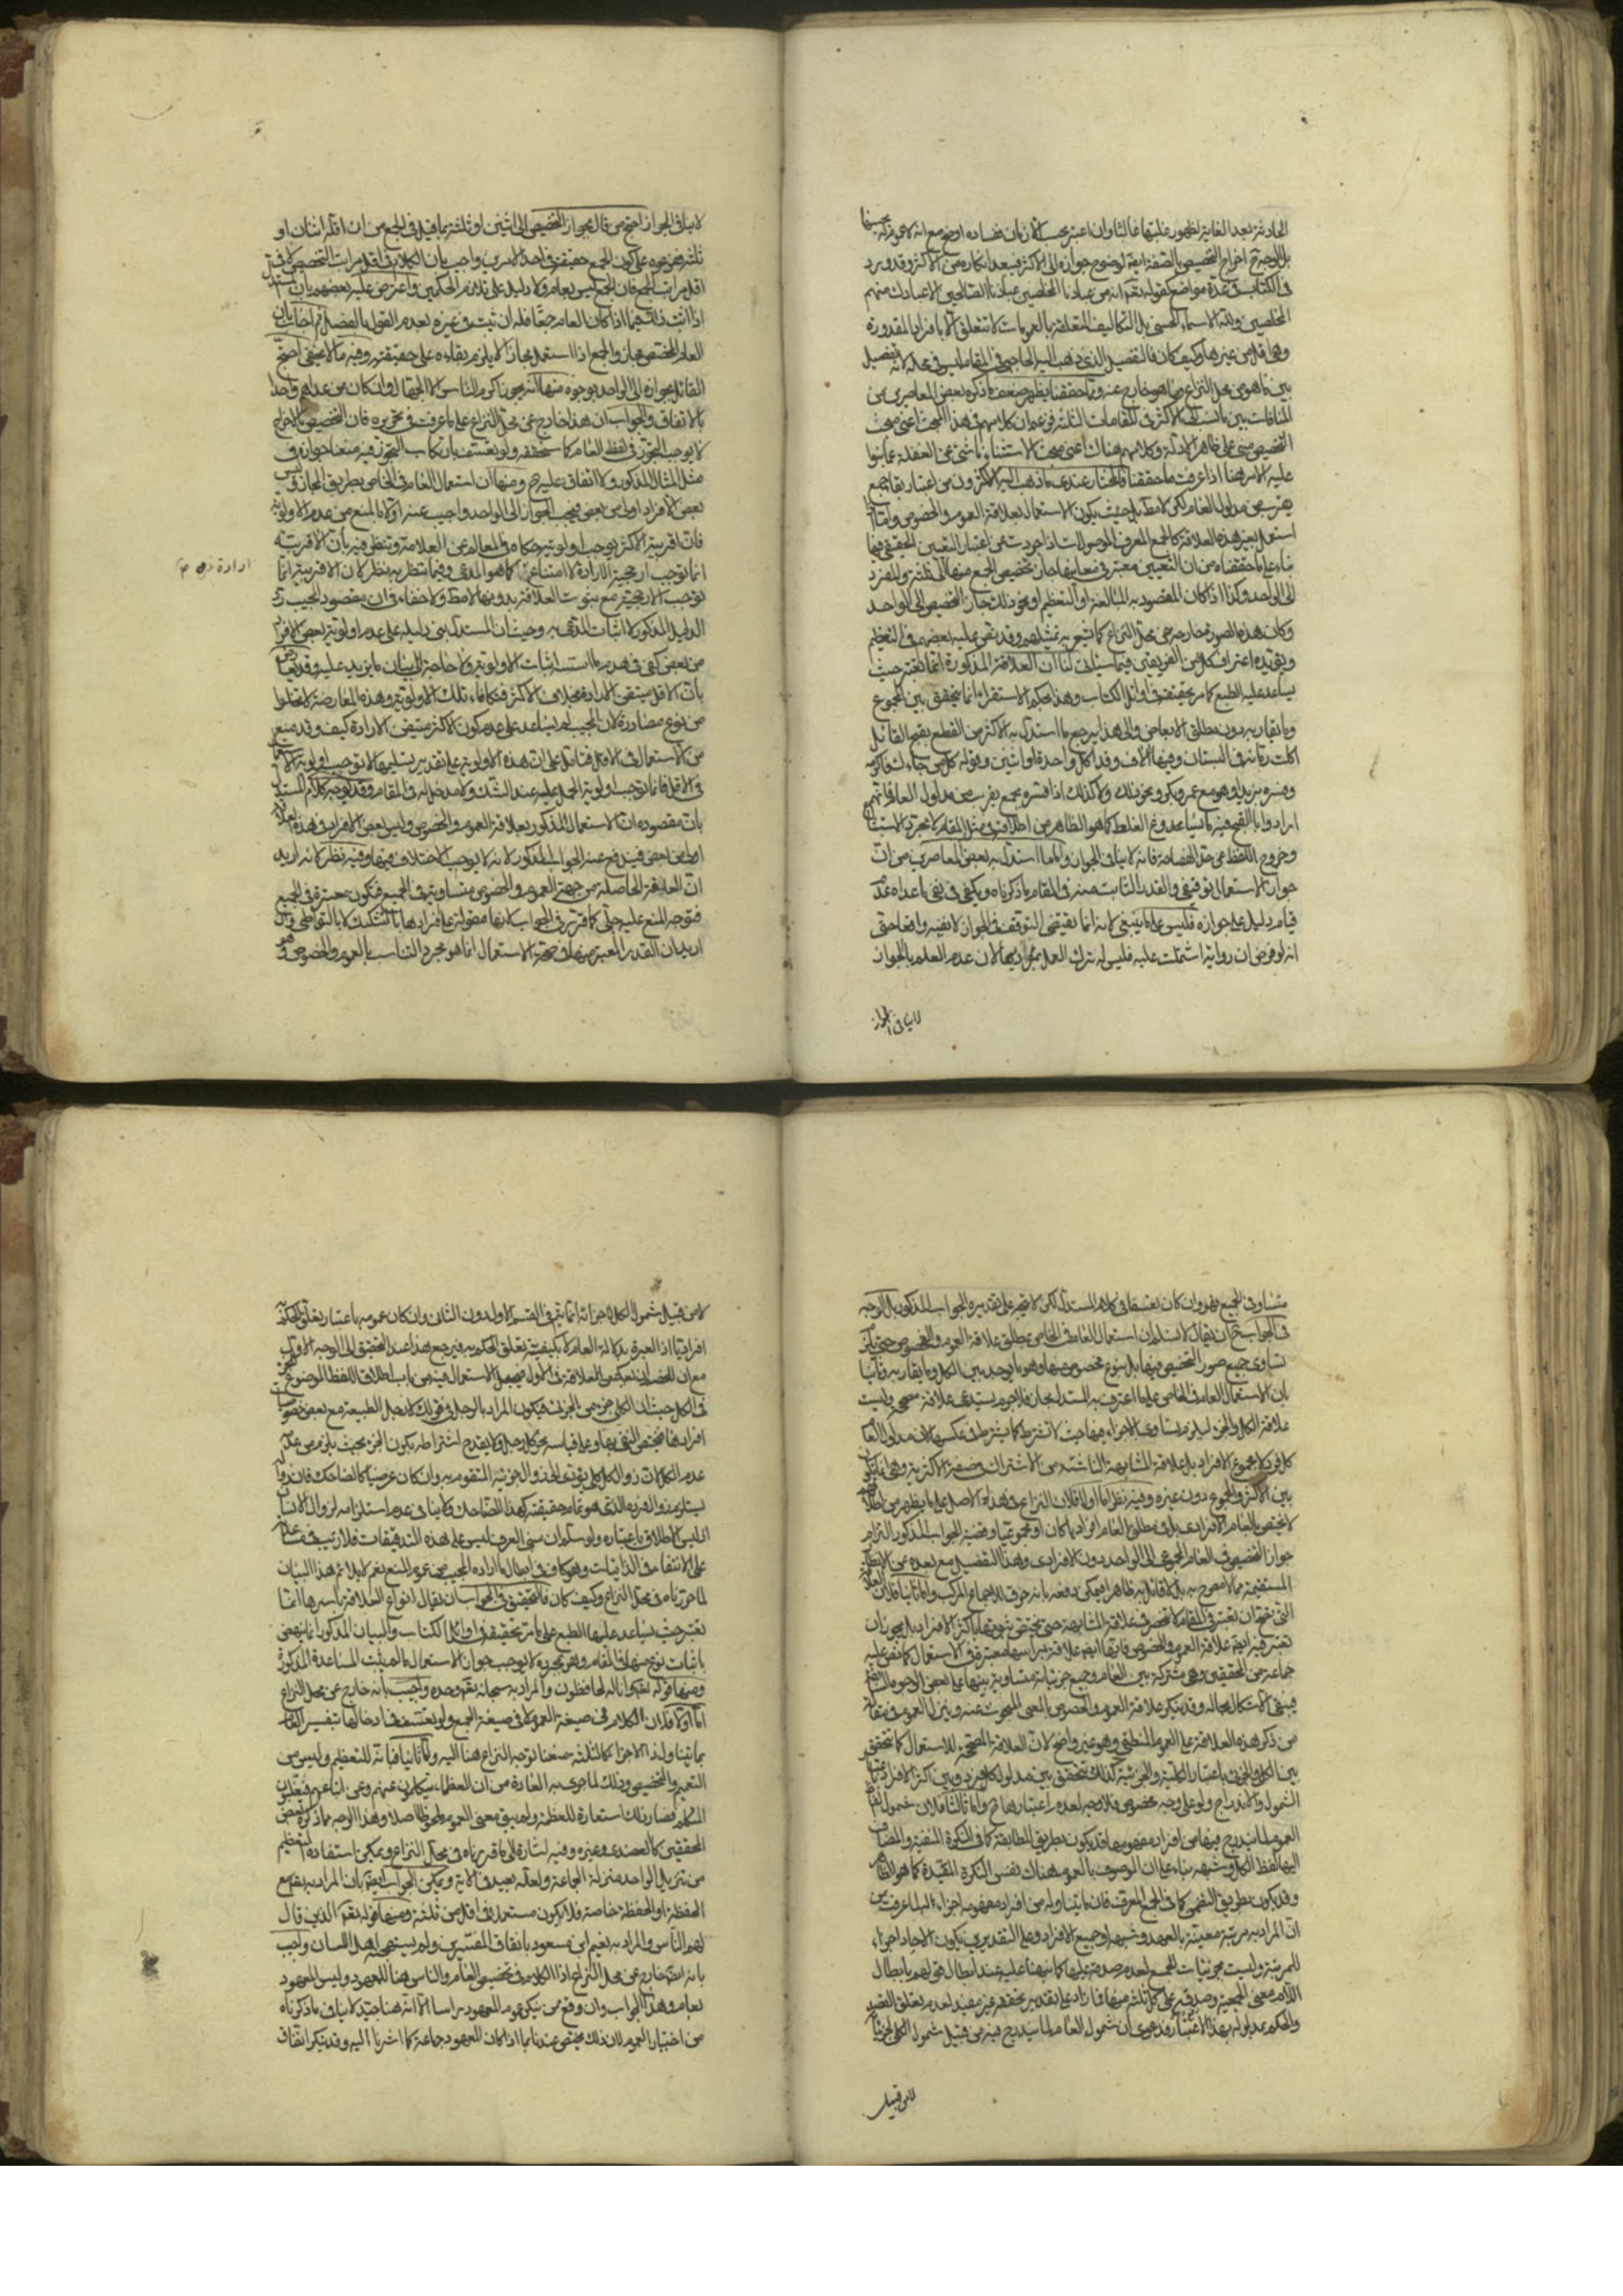 الحادثة بعد الغاية لظهور غلبتها غالبا وان اعتبر بحسب الازمان ففساده اوضح مع انه لا عموم له بحسبها
بل الوجه اخراج التخصيص بالصفة ايضا لوضوح جوازه الى الاكثر فيبعد انكاره من الاكثر وقد ورد
فى الكتاب فى عدة مواضع كقوله تعم انه من عبادنا المخلصين عبادنا الصالحين الا عبادك منهم
المخلصين ولله الاسماء الحسنى بل التكاليف المتعلقة بالعمومات لا تتعلق الا بافرادها المقدورة
وهى اقل من غيرها وكيف كان فالتفصيل الذى ذهب اليه الحاجبى فى المقام ليس فى محله لانه تفصيل
بين ما هو من محل النزاع وما هو خارج عنه وبما حققنا يظهر ضعف ما ذكره بعض المعاصرين من
المنافات بين ما نسب الى الاكثر فى المقامات الثلثة فزعم ان كلامهم فى هذا المبحث اعنى مبحث
التخصيص مبنى على ظاهر الادلة وكلامهم هناك اعنى مبحث الاستثناء ناشئ عن الغفلة عما بنوا
عليه الامر هنا اذا عرفت ما حققنا فالمختار عندى ما ذهب اليه الاكثرون من اعتبار بقاء جمع
يقرب من مدلول العام لكن لا مط بل حيث يكون الاستعمال بعلاقة العموم والخصوص واما اذا
استعمل بغير هذه العلاقة كالجمع المعرف والموصولات اذا جردت عن اعتبار التعيين الحقيقى فيها
بناء على ما حققناه من ان التعيين معتبر فى معانيها جاز تخصيص الجمع منها الى ثلثة والمفرد
الى الواحد وكذا اذا كان المقصود به المبالغة او التعظيم او نحو ذلك جاز التخصيص الى الواحد
وكان هذه الصور خارجة عن محل النزاع كما يشعر به تمثيلهم وقد نص عليه بعضهم فى التعظيم
ويؤيده اعتراف كل من الفريقين فيما سياتى لنا ان العلاقة المذكورة انما تعتبر حيث
يساعد عليه الطبع كما مر تحقيقه فى اوائل الكتاب وهذا بحكم الاستقراء انما يتحقق بين المجموع
وما يقاربه دون مطلق الابعاض والى هذا يرجع ما استدل به الاكثر من القطع بقبح القائل
اكلت رمانة فى البستان وفيها الاف وقد اكل واحدة او اثنين وقوله كل من جاءك فاكرمه
وفسره بزيد او هو مع عمرو بكر ونحو ذلك ولا كذلك اذا فسره بجمع يقرب من مدلول العام فانهم
ارادوا بالقبح فيه ما يساعد وغ الغلط كما هو الظاهر من اطلاقه فى مثل المقام لا مجرد الاستبشاع
وخروج اللفظ عن حد الفصاحة فانه لا ينافى الجواز واما ما استدل به بعض المعاصرين من ان
جواز الاستعمال توقيفى والقدر الثابت منه فى المقام ما ذكرناه ويكفى فى نفى ما عداه عدم
قيام دليل على جوازه فليس على ما ينبغى لانه انما يقتضى التوقف فى الجواز لا نفيه واقعا حتى
انه لو فرض ان رواية اشتملت عليه فليس له ترك العمل بموجبها لان عدم العلم بالجواز
لا ينافى الجواز
لا ينافى الجواز احتج من قال بجواز التخصيص الى اثنين او ثلثة بما قيل فى الجمع من ان اقله اثنان او
ثلثة ففرعوه على كون الجمع حقيقة فى احد الامرين واجيب بان الكلام فى اقل مراتب التخصيص لا فى
اقل مراتب الجمع فان الجمع ليس بعام ولا دليل على تلازم الحكمين واعترض عليه بعضهم بان المستدل
اذا اثبت ذلك فيما اذا كان العام جمعا فله ان يثبت فى غيره بعدم القول بالفصل ثم اجاب بان
العام المختص مجاز والجمع اذا استعمل مجازا لا يلزم بقاءه على حقيقته وفيه ما لا يخفى احتج
القائل بجوازه الى الواحد بوجوه منها انه يجوز اكرم الناس الا الجهال وان كان من عداهم واحدا
بالاتفاق والجواب ان هذا خارج عن محل النزاع على ما عرفت فى تحريره فان التخصيص بالاخراج
لا يوجب التجوز فى لفظ العام كما سنحققه ولو تعسف بارتكاب التجوز فيه منعنا جوازه فى
مثل المثال المذكور ولا اتفاق عليه ح ومنها ان استعمال العام فى الخاص بطريق المجاز وليس
بعض الافراد اولى من بعض فيجب الجواز الى الواحد واجيب عنه اولا بالمنع من عدم الاولوية
فان اقربية الاكثر يوجب اولويته حكاه فى المعالم عن العلامة وتنظر فيه بان الاقربية
انما توجب ارجحية الارادة لا امتناع كما هو المدعى وفيما تنظر به نظر لان الاقربية انما
ارادة صح م
توجب الارجحية مع ثبوت العلاقة بدونها لا مط ولا خفاء فى ان مقصود المجيب رد
الدليل المذكور لا اثبات المدعى به وحيث ان المستدل بنى دليله على عدم اولوية بعض الافراد
من بعض كفى فى هدمه ما استند اثبات الاولوية ولا حاجة الى بيان ما يزيد عليه وقد يعارض
بان الاقل متيقن الارادة بخلاف الاكثر فتكافاء تلك الاولوية وهذه المعارضة لا تخلوا
من نوع مصادرة لان المجيب لم يساعد على عدم كون الاكثر متيقن الارادة كيف وقد منع
من الاستعمال فى الاقل فتامل على ان هذه الاولوية على تقدير تسليمها لا توجب اولوية الاستعمال
فى الاقل فانما توجب اولوية الحمل عليه عند الشك ولا مدخل له فى المقام وقد يوجه كلام المستدل
بان مقصوده ان الاستعمال المذكور بعلاقة العموم والخصوص وليس بعض الافراد فى هذه العلاقة
اولى من بعض فيندفع عنه الجواب المذكور لانه لا يوجب الاختلاف فيها وفيه نظر لانه ان اريد
ان العلاقة الحاصلة من جهة العموم والخصوص متساوية فى الجميع فتكون معتبرة فى الجميع
فتوجه المنع عليه جلى كما قرر فى الجواب لانها مقولة على افرادها بالتشكيك لا بالتواطى وان
اريد ان القدر المعتبر منها فى صحة الاستعمال انما هو مجرد التناسب بالعموم والخصوص وهو
متساو فى الجميع فهو وان كان تعسفا فى كلام المستدل لكن لا يتجه على تقديره الجواب المذكور بل الوجه
فى الجواب ح ان يقال لا نسلم ان استعمال العام فى الخاص بمطلق علاقة العموم والخصوص حتى يلزم
تساوى جميع صور التخصيص فيها بل بنوع مخصوص منها وهو ما يوجد بين الكل وما يقاربه وثانيا
بان الاستعمال العام فى الخاص على ما اعترف به المستدل مجاز فلا جرم يستدعى علاقة مصححة وليست
علاقة الكل والجزء ليلزم تساوى الاجزاء فيها حيث لا تشترط كما يشترط فى عكسها لان مدلول العام
كل فرد لا مجموع الافراد بل علاقة المشابهة الناشئة من الاشتراك فى صفة الاكثرية وهى انما يكون
بين الاكثر والمجموع دون غيره وفيه نظر اما اولا فلان النزاع فى هذا الاصل على ما يظهر من اطلاقهم
لا يختص بالعام الافرادى بل فى مطلق العام افراديا كان او مجموعيا وقضية الجواب المذكور التزام
جواز التخصيص فى العام المجموعى الى الواحد دون الافرادى وهذا التفصيل مع بعده عن الانظار
المستقيمة مما لا مصرح به بل لا قائل به ظاهرا فيمكن دفعه بانه خرق للاجماع المركب واما ثانيا فلان العلاقة
التى يمكن ان يعتبر فى المقام لا تنحصر فى علاقة المشابهة حتى يختص ثبوتها باكثر الافراد بل يجوز ان
تعتبر فيه ايضا علاقة العموم والخصوص فانها ايضا علاقة براسها معتبرة فى الاستعمال كما نص عليه
جماعة من المحققين وهى مشتركة بين العام وجميع جزئياته متساوية بينها على بعض الوجوه السابقة
فيبقى الاشكال بحاله وقد ينكر علاقة العموم والخصوص بالمعنى المبحوث عنه وينزل العموم فى مقالة
من ذكر هذه العلاقة على العموم المنطقى وهو غير واضح لان العلاقة المصححة للاستعمال كما يتحقق
بين الكلى والجزئى باعتبار الكلية والجزئية كذلك يتحقق بين مدلول كل فرد وبين اكثر الافراد باعتبار
الشمول والاندراج ولو على وجه مخصوص فلا وجه لعدم اعتبارها ح واما ثالثا فلان شمول لفظ
العموم لما يندرج فيها من افراد مفهومها قد يكون بطريق المطابقة كما فى النكرة المنفية والمضاف
اليها لفظ الكل وشبهه بناء على ان الموصوف بالعموم هناك نفس النكرة المقيدة كما هو الظاهر
وقد يكون بطريق التضمن كما فى الجمع المعرف فان ما يتناوله من افراد مفهومه اجزاء له لما عرفت من
ان المراد به مرتبة معينة بالعهد وشبهه او جميع الافراد وعلى التقديرين يكون الاحاد اجزاء
للمرتبة وليست جزئيات للجمع لعدم صدقه عليها كما نبهنا عليه عند ابطال قولهم بابطال
اللام معنى الجمعية وصدقه على كل ثلثة منها فما زاد على تقدير تحققه غير مفيد لعدم تعلق القصد
والحكم بمدلوله بهذا الاعتبار ودعوى ان شمول العام لما يندرج فيه من قبيل شمول الكلى لجزئياته
لا من قبيل
لا من قبيل شمول الكل لاجزائه انما يتم فى القسم الاول دون الثانى وان كان عمومه باعتبار تعلق الحكم به
افراديا اذ العبرة بدلالة العام لا بكيفية تعلق الحكم به فيرجع هذا عند التحقيق الى الوجه الاول
مع ان للخصم ان يعكس العلاقة فى الاول فيجعل الاستعمال فيه من باب اطلاق اللفظ الموضوع للجزء
فى الكل حيث ان الكلى جزء من الجزئى فيكون المراد بالرجل فى قولك لا رجل الطبيعة مع بعض خصوصيات
افرادها فيختص النفى بها وعلى قياسه نحو كل رجل ولا يقدح اشتراطه بكون الجزء بحيث يلزم من عدمه
عدم الكل لان زوال الكلى يؤدى الى زوال جزئيه المتقوم به وان كان عرضيا كالضاحك فان زواله
يستلزم زوال فرده الذى هو تمام حقيقته كهذا الضاحك ولا ينافى عدم استلزامه لزوال الانسان
اذ ليس الاطلاق باعتباره ولو سلم ان مبنى العرف ليس على هذه التدقيقات فلا ريب فى مساعدته
على الانتفاء فى الذاتيات وهو كاف فى ابطال ما اراده المجيب من عموم المنع نعم لا يلائم هذا البيان
لما حررناه فى محل النزاع وكيف كان فالتحقيق فى الجواب ان يقال انواع العلاقة باسرها انما
تعتبر حيث يساعد عليها الطبع على ما مر تحقيقه فى اوائل الكتاب والبيان المذكور انما ينهض
باثبات نوع منها فى المقام وهو بمجرده لا يوجب جواز الاستعمال ما لم يثبت المساعدة المذكورة
ومنها قوله تعم وانا له لحافظون والمراد به سبحانه تعم وحده واجيب بانه خارج عن محل النزاع
اما اولا فلان الكلام فى صيغة العموم لا فى صيغة الجمع ولو تعسف فى ادخالها بتفسير العام
بما يتناول ذا الاجزاء كالثلثة منعنا توجه النزاع هنا اليه واما ثانيا فبانه للتعظيم وليس من
التعميم والتخصيص وذلك لما جرى به العادة من ان العظماء يتكلمون عنهم وعن اتباعهم فيغلبون
المتكلم فصار ذلك استعارة للعظمة ولم يبق معنى العموم ملحوظا اصلا وهذا الوجه مما ذكره بعض
المحققين كالعضدى وغيره وفيه اشارة الى ما قررناه فى محل النزاع ويمكن استفادة التعظيم
من تنزيل الواحد منزلة الجماعة ولعله بعيد فى الاية ويمكن الجواب ايضا بان المراد به هو مع
الحفظة او الحفظة خاصة فلا يكون مستعملا فى اقل من ثلثة ومنها قوله تعم الذين قال
لهم الناس والمراد به نعيم ابن مسعود باتفاق المفسرين ولم يستهجنه اهل اللسان واجيب
بانه ايضا خارج عن محل النزاع اذ الكلام فى تخصيص العام والناس هنا للمعهود وليس المعهود
بعام وهذا الجواب وان وقع ممن ينكر عموم المعهود براسه الا انه هنا جيد لا ينافى ما ذكرناه
من اختيار العموم لان ذلك مختص عندنا بما اذا كان المعهود جماعة كما اشرنا اليه وقد ينكر اتفاق